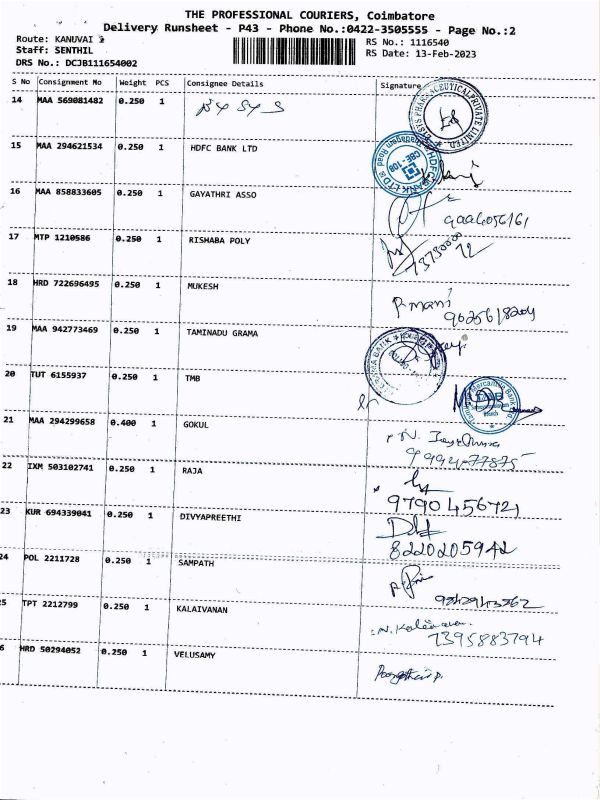 THE PROFESSIONAL COURIERS, Coimbatore
Delivery Runsheet - P43 - Phone No.:0422-3505555 - Page No.:2
Route: KANUVAI 2
RS No.: 1116540
Staff: SENTHIL
RS Date: 13-Feb-2023
DRS No.: DCJB111654002
S No Consignment No Weight PCS Consignee Details Signature
14 MAA 569081482 0.250 1
15 MAA 294621534 0.250 1 HDFC BANK LTD
16 MAA 858833605 0.250 1 GAYATHRI ASSO
17 MTP 1210586 0.250 1 RISHABA POLY
18 HRD 722696495 0.250 1 MUKESH
P. mani
19 MAA 942773469 0.250 1 TAMINADU GRAMA
20 TUT 6155937 0.250 1 TMB
21 MAA 294299658 0.400 1 GOKUL
22 IXM 503102741 0.250 1 RAJA
9790456721
23 KUR 694339041 0.250 1 DIVYAPREETHI
8220205942
24 POL 2211728 0.250 1 SAMPATH
25 TPT 2212799 0.250 1 KALAIVANAN
N. Kalaivanan
7395883794
6 HRD 50294052 0.250 1 VELUSAMY